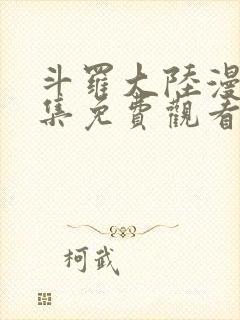 斗羅大陸漫
集免費觀看
柯武